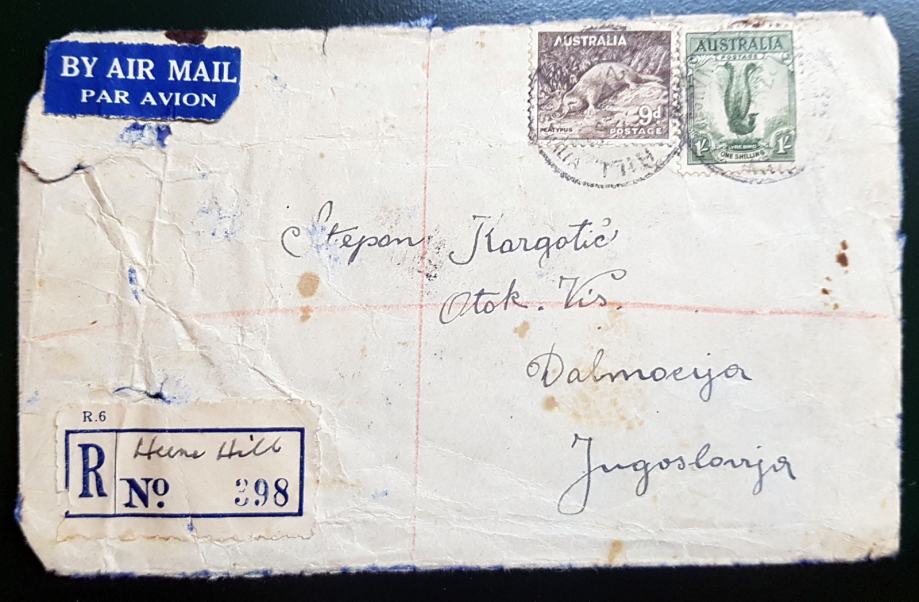 BY AIR MAIL
PAR AVION
AUSTRALIA
PLATYPUS
9d
POSTAGE
AUSTRALIA
POSTAGE
1/-
LYRE BIRD
1/-
ONE SHILLING
HILL
Stepan Kargotić
Otok. Vis.
Dalmacija
Jugoslavija
R.6
R
Herne Hill
No 398